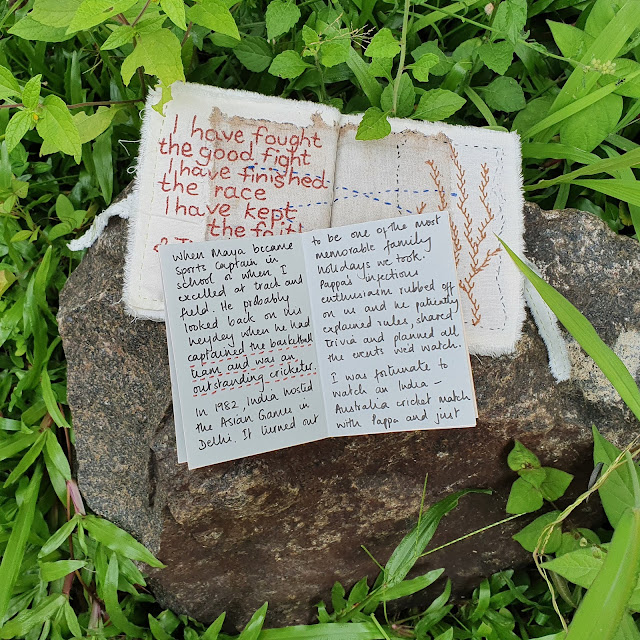 I have fought
the good fight
I have finished
the race
I have kept
the faith
when Maya became
sports captain in
school & when I
excelled at track and
field. He probably
looked back on his
heyday when he had
captained the basketball
team and was an
outstanding cricketer.
In 1982, India hosted
the Asian Games in
Delhi. It turned out
to be one of the most
memorable family
holidays we took.
Pappa's infectious
enthusiasm rubbed off
on us and he patiently
explained rules, shared
trivia and planned all
the events we'd watch.
I was fortunate to
watch an India –
Australia cricket match
with Pappa and just